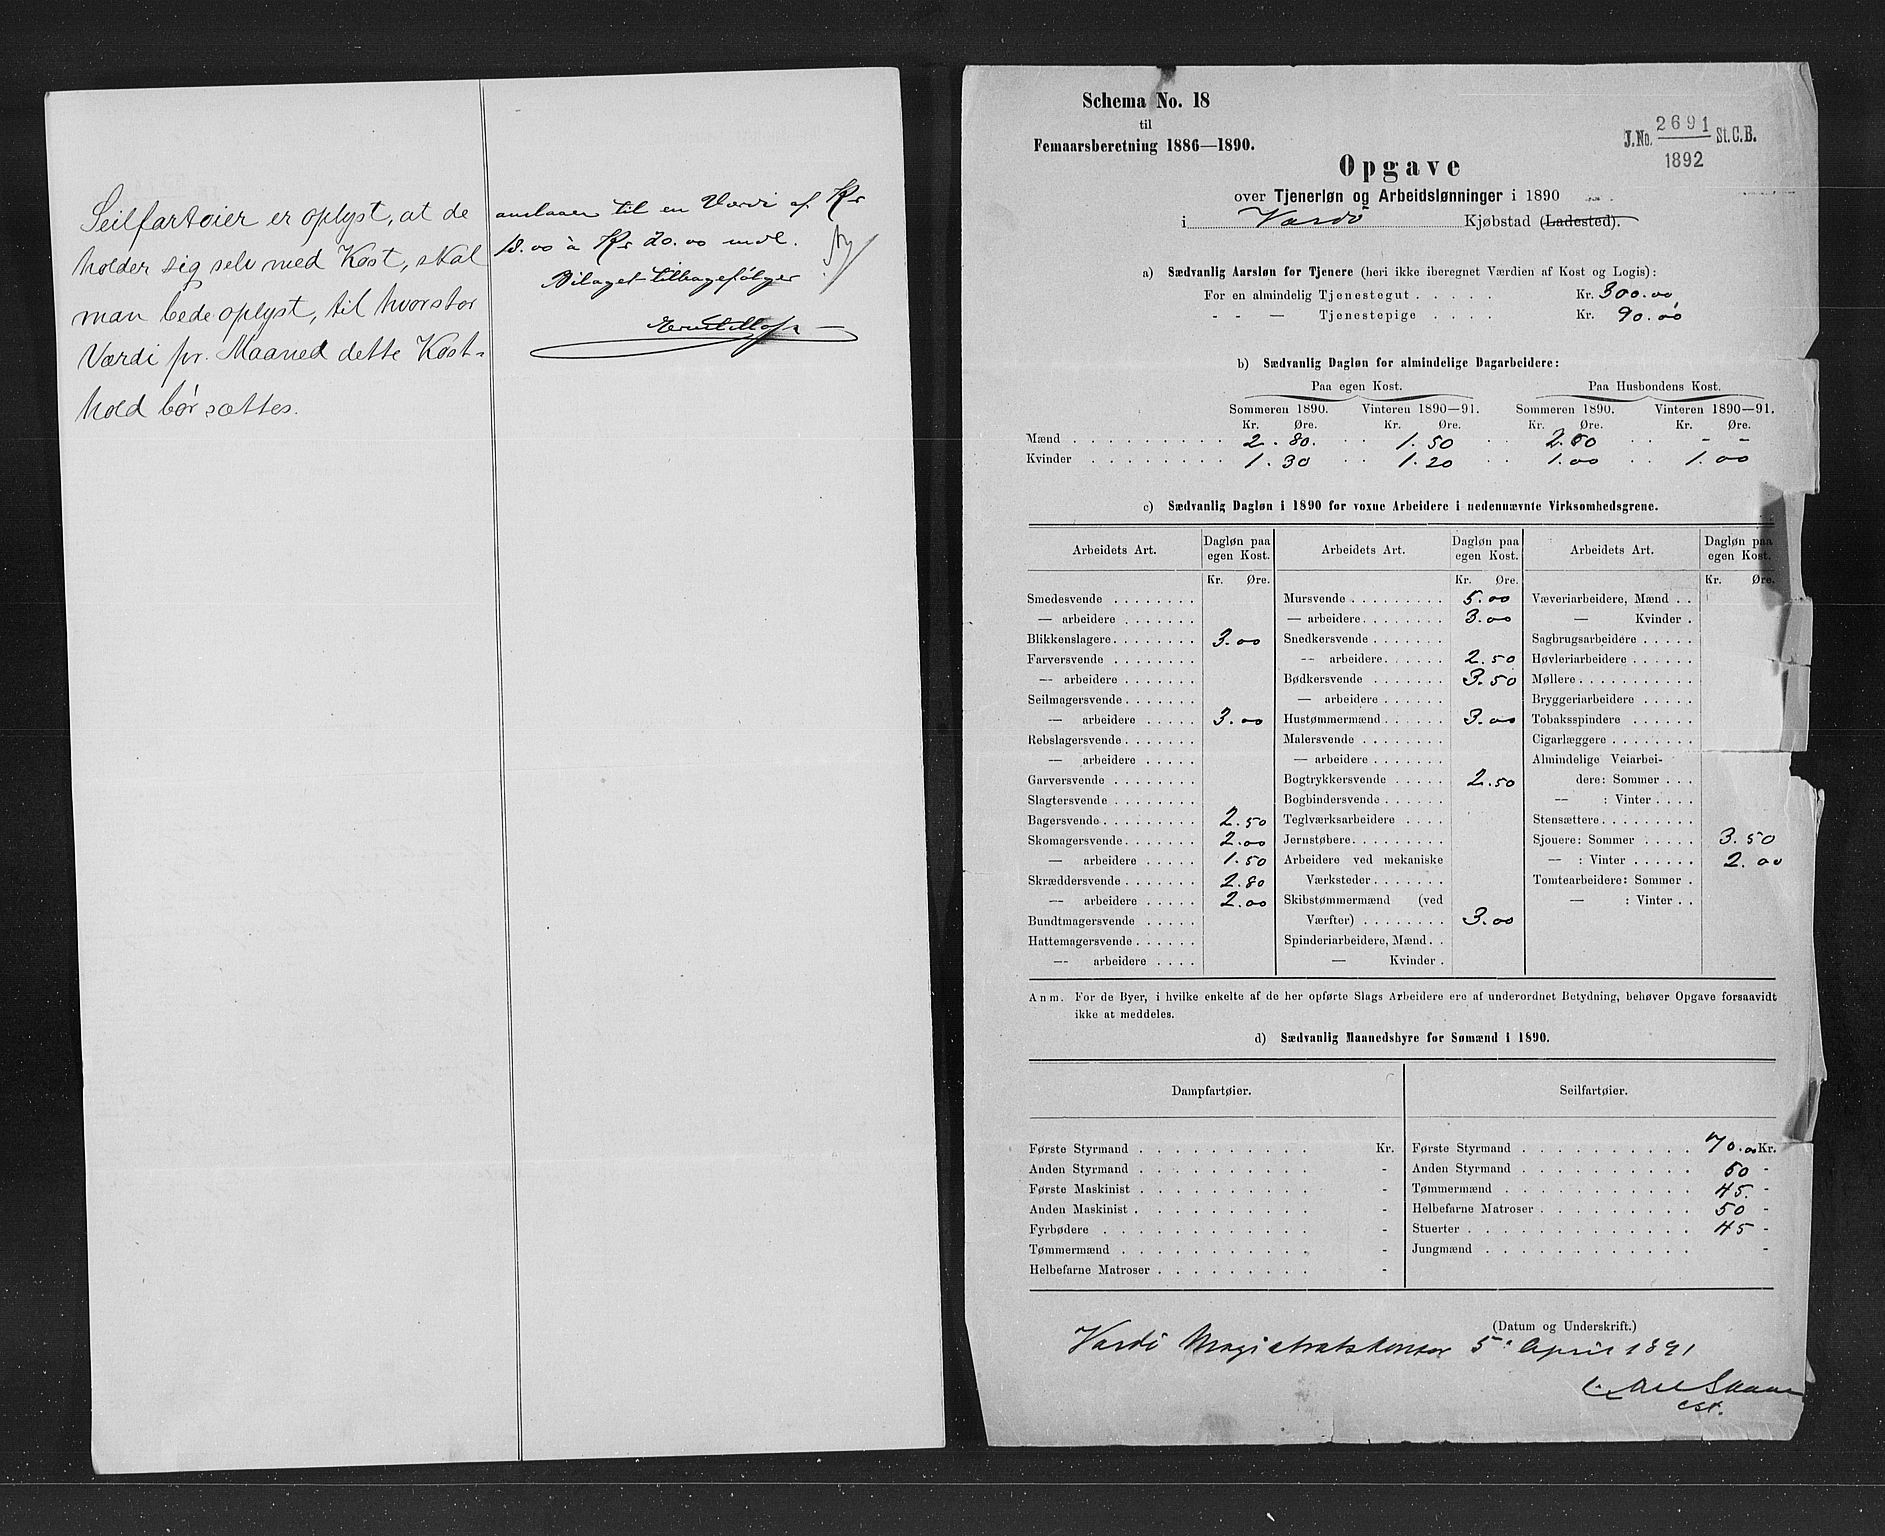 Seilfartøier er oplyst, at de
holder sig selv med Kost, skal
man bede oplyst, til hvor stor
Værdi pr. Maaned dette Kost-
hold bør sættes.
anslaaes til en Værdi af Kr
18.00 à Kr 20.00 mdl.
Bilaget tilbagefølger
Schema No. 18
til
Femaarsberetning 1886—1890.
J. No. 2691 St. C. B.
1892
Opgave
over Tjenerløn og Arbeidslønninger i 1890
i Vardö Kjøbstad (Ladested).
a) Sædvanlig Aarsløn for Tjenere (heri ikke iberegnet Værdien af Kost og Logis):
For en almindelig Tjenestegut . . . . . Kr. 300.00
- - — Tjenestepige . . . . Kr. 90.00
b) Sædvanlig Dagløn for almindelige Dagarbeidere:
Paa egen Kost. Paa Husbondens Kost.
Sommeren 1890. Vinteren 1890—91. Sommeren 1890. Vinteren 1890—91.
Kr. Øre. Kr. Øre. Kr. Øre. Kr. Øre.
Mænd . . . . . . . . . 2.80. . . 1.50 . . 2.00 . . - -
Kvinder . . . . . . . . 1.30 . . 1.20 . . 1.00 . . 1.00
c) Sædvanlig Dagløn i 1890 for voxne Arbeidere i nedennævnte Virksomhedsgrene.
Arbeidets Art. Dagløn paa egen Kost.
Kr. Øre.
Smedesvende . . . . . . . .
— arbeidere . . . . . . .
Blikkenslagere . . . . . . . 3.00
Farversvende . . . . . . . .
— arbeidere . . . . . . .
Seilmagersvende . . . . . . .
— arbeidere . . . . . 3.00
Rebslagersvende . . . . . . .
— arbeidere . . . . .
Garversvende . . . . . . . .
Slagtersvende . . . . . . . .
Bagersvende . . . . . . . . 2.50
Skomagersvende . . . . . . . 2.00
— arbeidere . . . . . 1.50
Skræddersvende . . . . . . . 2.80
— arbeidere . . . . . 2.00
Bundtmagersvende . . . . .
Hattemagersvende . . . . . .
— arbeidere . . . .
Arbeidets Art. Dagløn paa egen Kost.
Kr. Øre.
Mursvende . . . . . . . . . 5.00
— arbeidere . . . . . . . . 3.00
Snedkersvende . . . . . . .
— arbeidere . . . . . . 2.50
Bødkersvende . . . . . . . 3.50
— arbeidere . . . . . .
Hustømmermænd . . . . . . 3.00
Malersvende . . . . . . . .
— arbeidere . . . . . . .
Bogtrykkersvende . . . . . 2.50
Bogbindersvende . . . . . .
Teglværksarbeidere . . . .
Jernstøbere . . . . . . . . .
Arbeidere ved mekaniske
Værksteder . . . . . . .
Skibstømmermænd (ved
Værfter) . . . . . . . . 3.00
Spinderiarbeidere, Mænd . .
— Kvinder .
Arbeidets Art. Dagløn paa egen Kost.
Kr. Øre.
Væveriarbeidere, Mænd . .
— Kvinder .
Sagbrugsarbeidere . . . . .
Høvleriarbeidere . . . . . .
Møllere . . . . . . . . . . .
Bryggeriarbeidere . . . . .
Tobaksspindere . . . . . .
Cigarlæggere . . . . . . . .
Almindelige Veiarbei-
dere: Sommer . . .
— : Vinter . . . .
Stensættere . . . . . . . . .
Sjouere: Sommer . . . . . 3.50
— : Vinter . . . . . . 2.00
Tomtearbeidere: Sommer .
— : Vinter . .
Anm. For de Byer, i hvilke enkelte af de her opførte Slags Arbeidere ere af underordnet Betydning, behøver Opgave forsaavidt
ikke at meddeles.
d) Sædvanlig Maanedshyre for Sømænd i 1890.
Dampfartøier.
Første Styrmand . . . . . . . . . Kr.
Anden Styrmand . . . . . . . . . -
Første Maskinist . . . . . . . . . -
Anden Maskinist . . . . . . . . . -
Fyrbødere . . . . . . . . . . . -
Tømmermænd . . . . . . . . . . -
Helbefarne Matroser . . . . . . . . -
Seilfartøier.
Første Styrmand . . . . . . . . . 70.00 Kr.
Anden Styrmand . . . . . . . . . 50 -
Tømmermænd . . . . . . . . . . 45. -
Helbefarne Matroser . . . . . . . . 50 -
Stuerter . . . . . . . . . . . . 45 -
Jungmænd . . . . . . . . . . . -
(Datum og Underskrift.)
Vardö Magistratskontor 5 April 1891
cst.